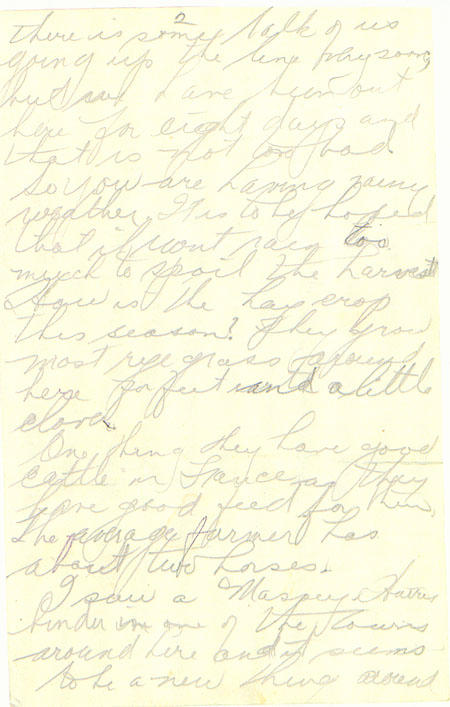 2
there is some talk of us
going up the line very soon,
but we have been out
here for eight days and
that is not too bad.
So you are having rainy
weather. It is to be hoped
that it wont rain too
much to spoil the harvest
How is the hay crop
this season? They grow
most rye grass around
here for feed and a little
clover.
One thing they have good
cattle in France, as they
have good feed for them,
The average farmer has
about two horses.
I saw a Massey Harris
binder in one of the towns
around here and it seems
to be a new thing around